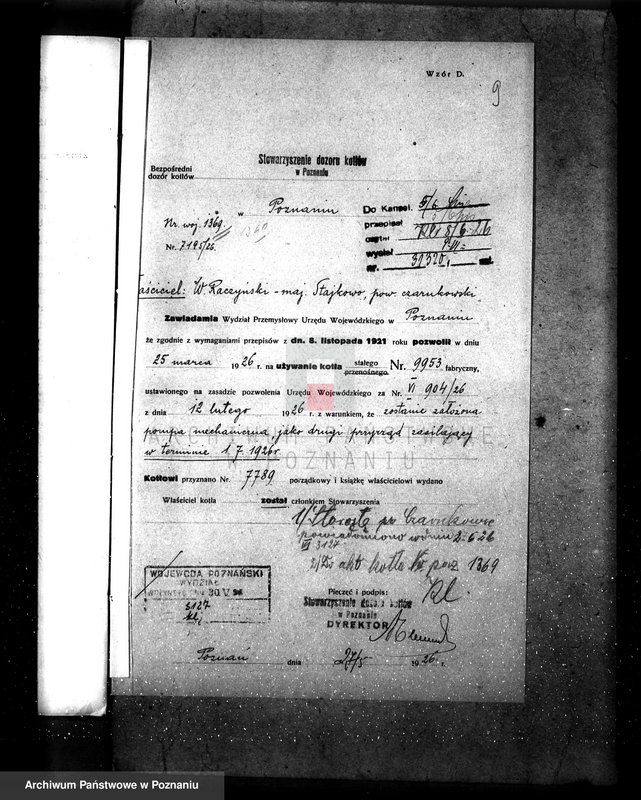 Wzór D.
9
Bezpośredni
dozór kotłów
Stowarzyszenie dozoru kotłów
w Poznaniu
w Poznaniu
Nr. woj. 1369.
1369
Nr. 7195/26.
Do Kancel. 5/6
przepisał
czytał 5/6 26
wysłał
nr. 31320,
aściciel: W. Raczyński - maj. Stajkowo, pow. czarnkowski
Zawiadamia Wydział Przemysłowy Urzędu Wojewódzkiego w Poznaniu
że zgodnie z wymaganiami przepisów z dn. 8. listopada 1921 roku pozwolił w dniu
25 marca 1926 r. na używanie kotła stałego przenośnego. Nr. 9953 fabryczny,
ustawionego na zasadzie pozwolenia Urzędu Wojewódzkiego za Nr. VI 904/26
z dnia 12 lutego 1926 r. z warunkiem, że zostanie założona
pompa mechaniczna, jako drugi przyrząd zasilający
w terminie 1.7.1926r
ARCHIWUM PAŃSTWOWE
W POZNANIU
Kotłowi przyznano Nr. 7789 porządkowy i książkę właścicielowi wydano
Właściciel kotła został członkiem Stowarzyszenia
1/ Starostę pow. Czarnkowie
powiadomiono w dniu 2.6.26
VI 3127
2/ Do akt kotła Nr. poz 1369
WOJEWODA POZNAŃSKI
WYDZIAŁ
30. V. 26
3127
Pieczęć i podpis:
Stowarzyszenie dozoru kotłów
w Poznaniu
DYREKTOR
Poznań dnia 27/5 1926 r.
Archiwum Państwowe w Poznaniu